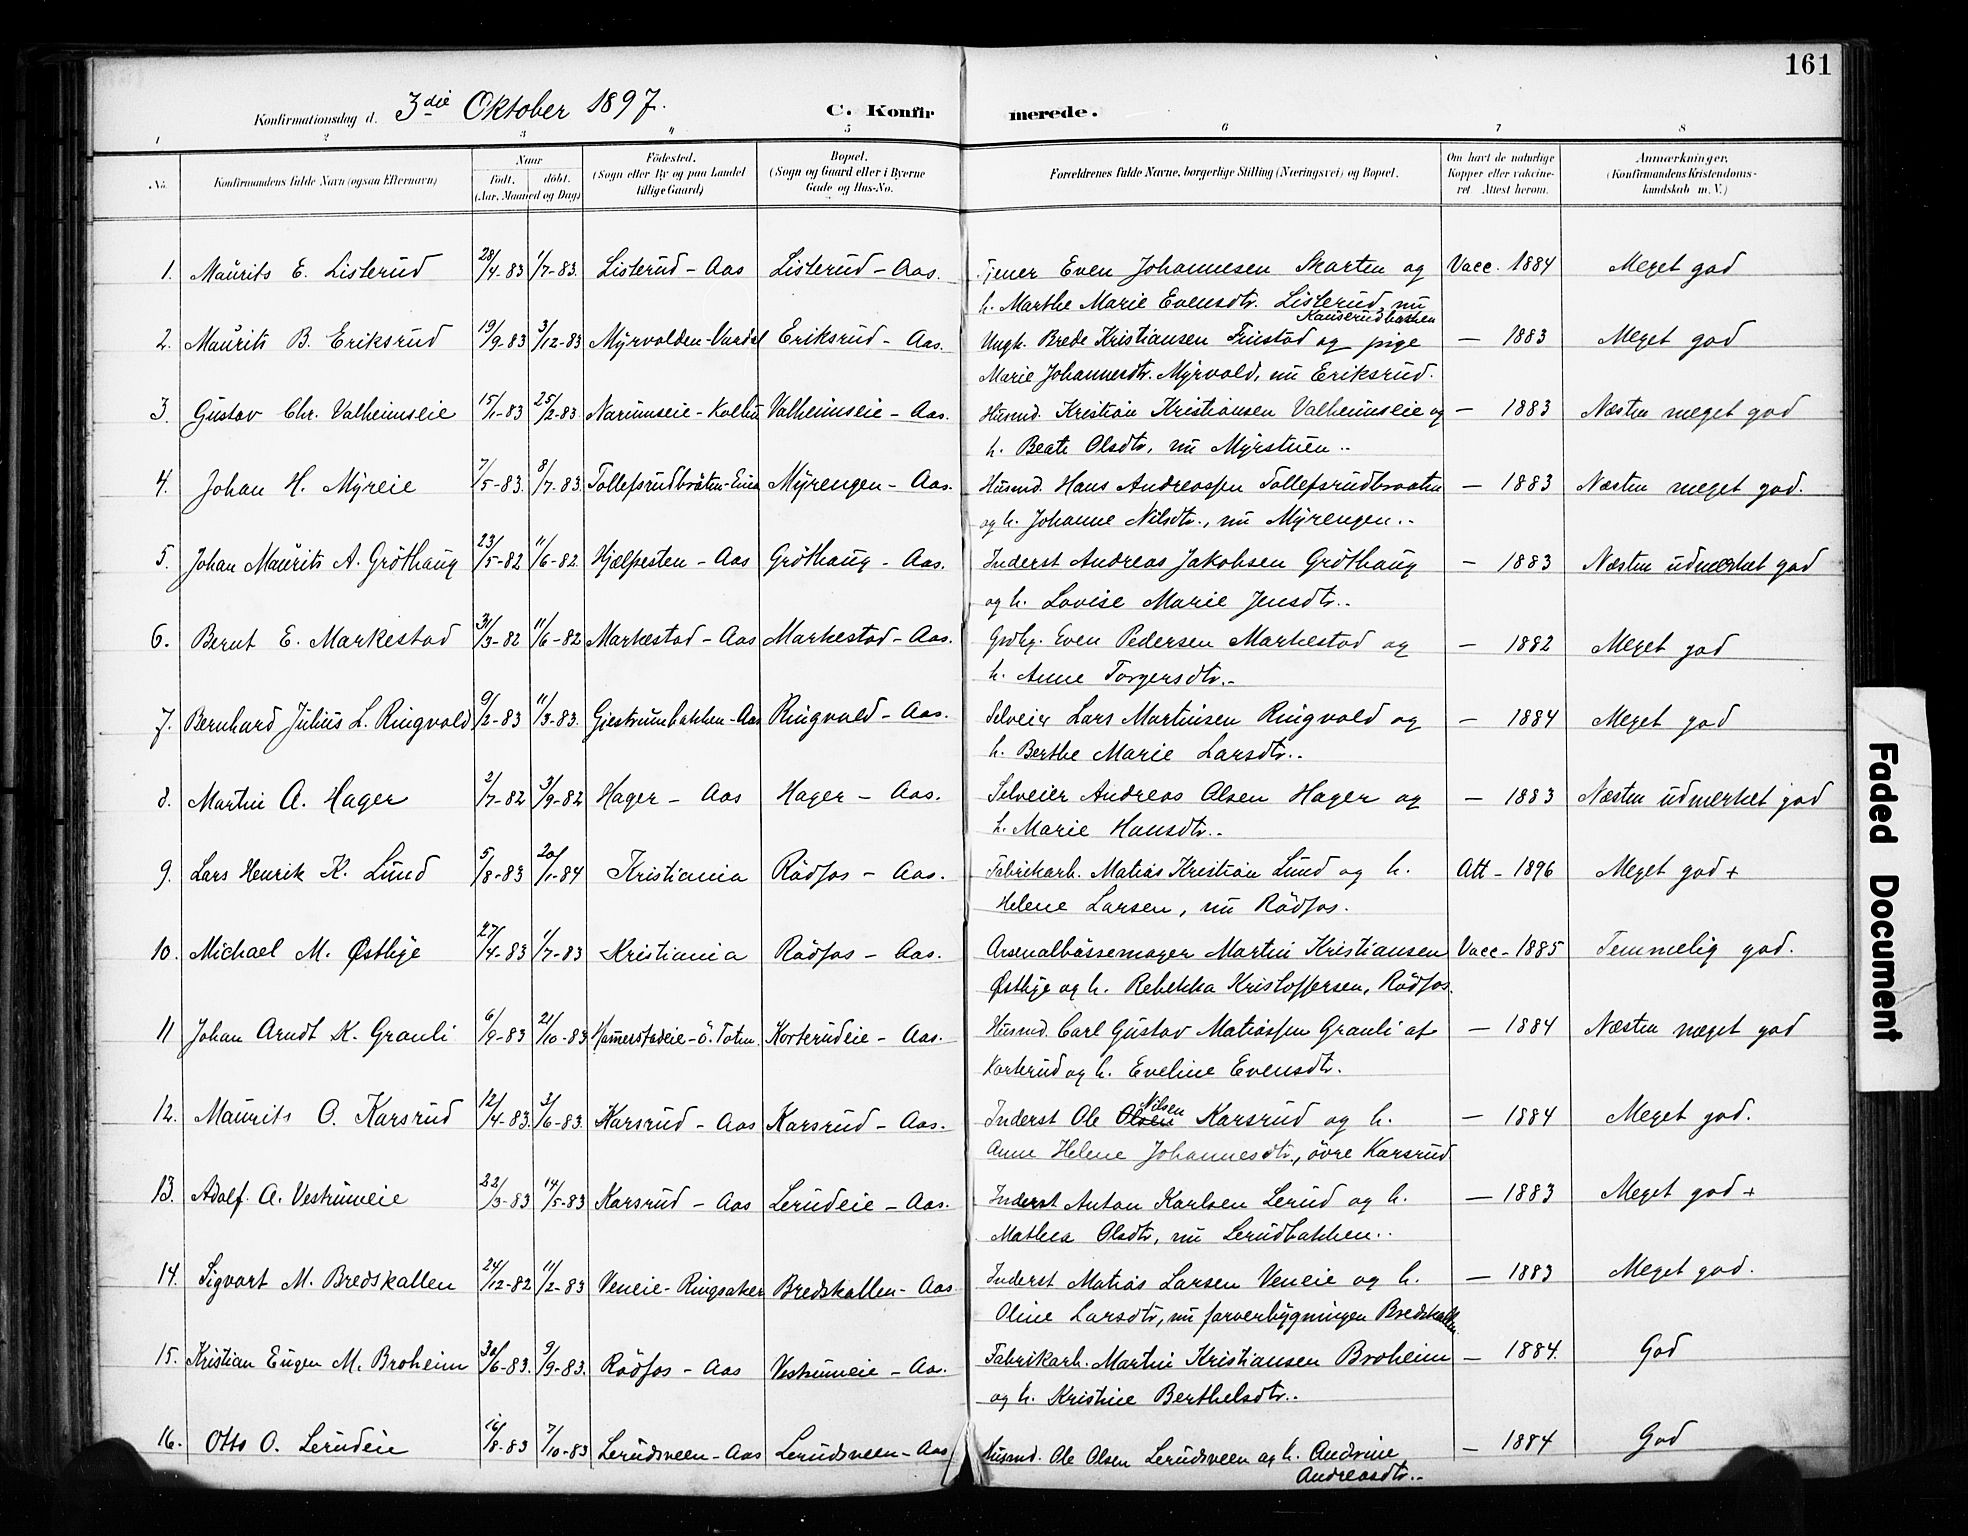 161
Konfirmationsdag d. 3die Oktober 1897. C. Konfirmerede.
1 2 3 4 5 6 7 8
No. Konfirmandens fulde Navn (ogsaa Efternavn) Naar Født. døbt. (Aar, Maaned og Dag) Fødested. (Sogn eller By og paa Landet tillige Gaard) Bopæl. (Sogn og Gaard eller i Byerne Gade og Hus-No. Forældrenes fulde Navne, borgerlige Stilling (Næringsvei) og Bopæl. Om havt de naturlige Kopper eller vakcineret Attest herom. Anmærkninger. (Konfirmandens Kristendomskundskab m. V.)
1. Maurits E. Listerud 28/4-83 1/7-83. Listerud - Aas Listerud - Aas. Tjener Even Johannesen Skarten og Vacc. 1884 Meget god
h. Marthe Marie Evensdtr. Listerud, nu
Kauserudbakken
2. Maurits B. Eriksrud 19/9-83 3/12-83 Myrvolden-Vardal Eriksrud - Aas. Ungk. Brede Kristiansen Finstad og pige — 1883 Meget god
Marie Johannesdtr. Myrvold, nu Eriksrud.
3. Gustav Chr. Valheimseie 15/1-83 25/2-83. Narumseie - Kolbu Valheimseie - Aas. Husmd. Kristian Kristiansen Valheimseie og — 1883 Næsten meget god
h. Beate Olsdtr, nu Myrstuen..
4. Johan H. Myreie 7/5-83. 8/7-83. Tollefsrudbråten-Eina Myrengen - Aas. Husmd. Hans Andreassen Tollefsrudbraaten — 1883 Næsten meget god.
og h. Johanne Nilsdtr., nu Myrengen..
5. Johan Maurits A. Gröthaug 23/5-82 11/6-82. Hjælpesten - Aas Gröthaug - Aas. Inderst Andreas Jakobsen Gröthaug — 1883 Næsten udmerket god
og h. Lovise Marie Jensdtr..
6. Bernt E. Markestad 31/3-82 11/6-82 Markestad - Aas Markestad - Aas. Grdbg. Even Pedersen Markestad og — 1882 Meget god
h. Anne Torgersdtr.-
7. Bernhard Julius L. Ringvold 9/2-83 11/3-83. Gjestrumbakken-Aas Ringvold - Aas. Selveier Lars Martinsen Ringvold og — 1884 Meget god
h. Berthe Marie Larsdtr..
8. Martin A. Hager 2/7-82 3/9-82 Hager - Aas Hager - Aas. Selveier Andreas Olsen Hager og — 1883 Næsten udmerket god
h. Marie Hansdtr..
9. Lars Henrik K. Lund 5/8-83 20/1-84 Kristiania Rödfos - Aas. Fabrikarb. Matias Kristian Lund og h. Att - 1896 Meget god +
Helene Larsen, nu Rödfos.
10. Michael M. Østbye 27/4-83 1/7-83 Kristiania Rödfos - Aas. Arsenalbössemager Martin Kristiansen Vacc - 1885 Temmelig god.
Østbye og h. Rebekka Kristoffersen, Rödfos.
11 Johan Arndt K. Granli 6/9-83 21/10-83 Hamerstadeie-ö. Toten. Korterudeie - Aas. Husmd. Carl Gustav Matiassen Granli af — 1884 Næsten meget god
Korterud og h. Eveline Evensdtr.
12. Maurits O. Karsrud 12/4-83. 3/6-83. Karsrud - Aas Karsrud - Aas. Inderst Ole Olsen Nilsen Karsrud og h. — 1884 Meget god.
Anne Helene Johannesdtr, övre Karsrud.
13. Adolf A. Vestrumeie 22/3-83 14/5-83 Karsrud - Aas Lerudeie - Aas. Inderst Anton Karlsen Lerud og h. — 1883 Meget god +
Mathea Olsdtr, nu Lerudbakken..
14. Sigvart M. Bredskallen 24/12-82 11/2-83 Veneie - Ringsaker Bredskallen - Aas Inderst Matias Larsen Veneie og h. — 1883 Meget god.
Oline Larsdtr, nu farverbygningen Bredskallen.
15. Kristian Eugen M. Broheim 30/6-83. 9/9-83. Rödfos - Aas Vestrumeie - Aas. Fabrikarb. Martin Kristiansen Broheim — 1884. God
og h. Kristine Berthelsdtr..
16. Otto O. Lerudeie 16/8-83 7/10-83 Lerudsveen - Aas Lerudsveen - Aas Husmd. Ole Olsen Lerudsveen og h. Andrine — 1884 God
Andreasdtr..
Faded Document